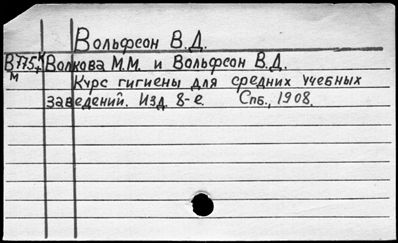 Вольфсон В.Д.
В775 Волкова М.М. и Вольфсон В.Д.
м Курс гигиены для средних учебных
заведений. Изд. 8-е. Спб., 1908.